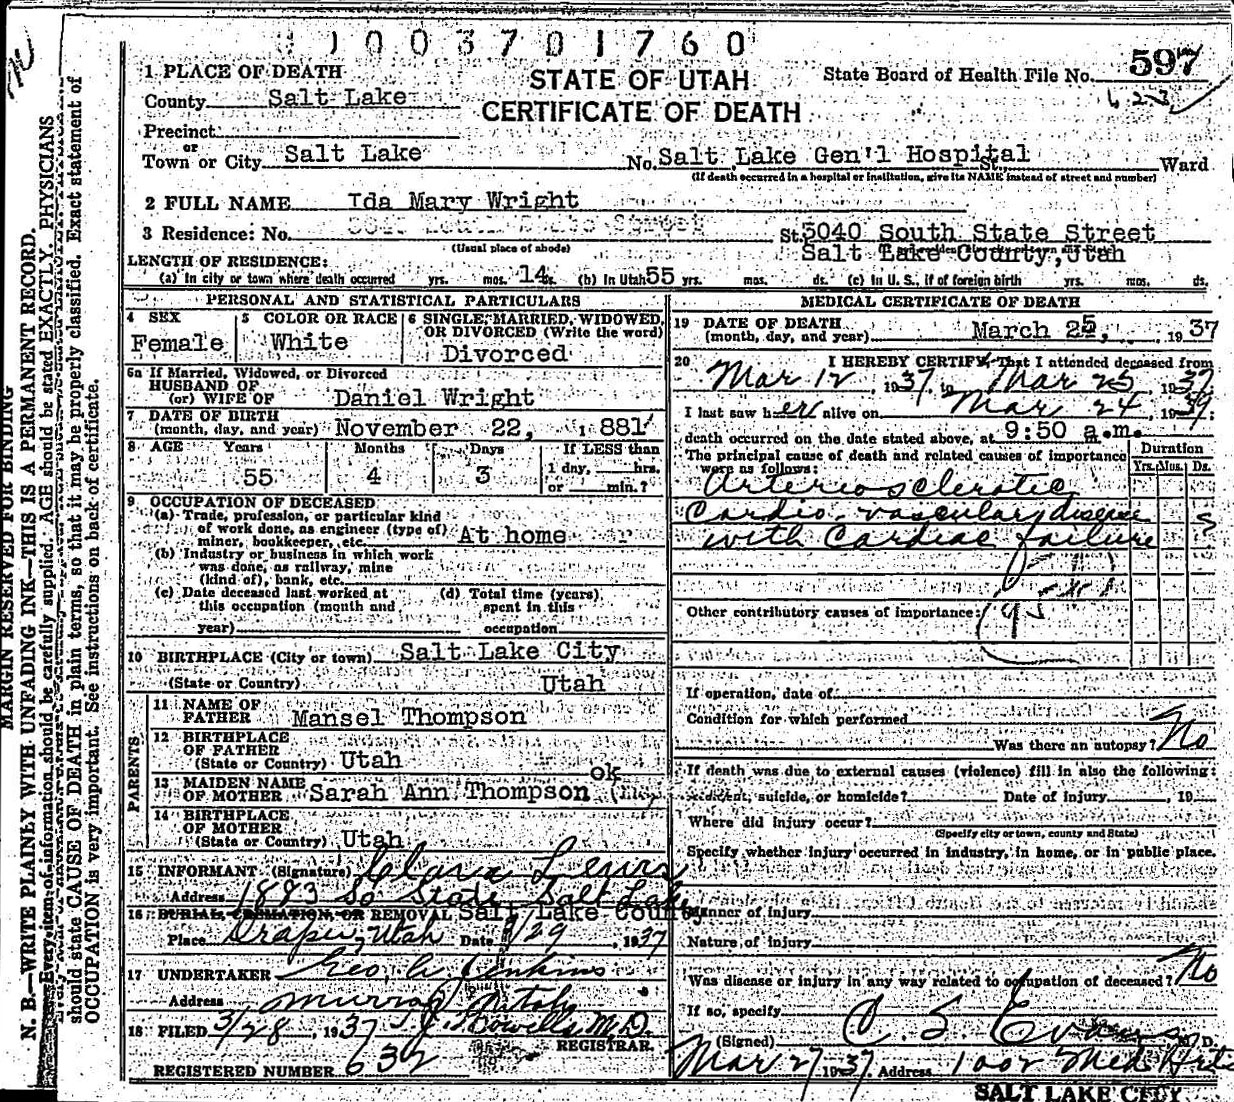 1003701760
597
1 PLACE OF DEATH
STATE OF UTAH
State Board of Health File No.
County Salt Lake
CERTIFICATE OF DEATH
Precinct
or
Town or City Salt Lake No. Salt Lake Gen'l Hospital St., Ward
(If death occurred in a hospital or institution, give its NAME instead of street and number)
2 FULL NAME Ida Mary Wright
3 Residence: No. St. 3040 South State Street
(Usual place of abode) Salt Lake County, Utah
LENGTH OF RESIDENCE:
(a) In city or town where death occurred yrs. mos. 14 ds. (b) In Utah 55 yrs. mos. ds. (c) In U. S., if of foreign birth yrs. mos. ds.
PERSONAL AND STATISTICAL PARTICULARS
4 SEX Female
5 COLOR OR RACE White
6 SINGLE, MARRIED, WIDOWED, OR DIVORCED (Write the word)
Divorced
6a If Married, Widowed, or Divorced
HUSBAND OF
(or) WIFE OF Daniel Wright
7 DATE OF BIRTH
(month, day, and year) November 22, 1881
8 AGE Years Months Days If LESS than
1 day, hrs.
55 4 3 or min.?
9 OCCUPATION OF DECEASED
(a) Trade, profession, or particular kind
of work done, as engineer (type of)
miner, bookkeeper, etc. At home
(b) Industry or business in which work
was done, as railway, mine
(kind of), bank, etc.
(c) Date deceased last worked at
this occupation (month and
year)
(d) Total time (years)
spent in this
occupation
10 BIRTHPLACE (City or town) Salt Lake City
(State or Country) Utah
PARENTS
11 NAME OF
FATHER Mansel Thompson
12 BIRTHPLACE
OF FATHER
(State or Country) Utah
ok
13 MAIDEN NAME
OF MOTHER Sarah Ann Thompson
14 BIRTHPLACE
OF MOTHER
(State or Country) Utah
15 INFORMANT (Signature) Clara Lewis
Address 1883 So State Salt Lake
16 BURIAL, CREMATION, OR REMOVAL Salt Lake County
Place Draper, Utah Date 3/29, 1937
17 UNDERTAKER Geo. A Jenkins
Address Murray Utah
18 FILED 3/28 1937 Howells M.D.
REGISTRAR.
REGISTERED NUMBER 632
MEDICAL CERTIFICATE OF DEATH
19 DATE OF DEATH
(month, day, and year) March 25, 1937
20 I HEREBY CERTIFY, That I attended deceased from
Mar 12, 1937, to Mar 25, 1937
I last saw her alive on Mar 24, 1937;
death occurred on the date stated above, at 9:50 a.m.
The principal cause of death and related causes of importance
were as follows:
Duration
Yrs. Mos. Ds.
Arteriosclerotic
Cardio vascular disease
with Cardiac failure
Other contributory causes of importance:
95
If operation, date of
Condition for which performed
Was there an autopsy? No
If death was due to external causes (violence) fill in also the following:
Accident, suicide, or homicide? Date of injury, 19
Where did injury occur?
(Specify city or town, county and State)
Specify whether injury occurred in industry, in home, or in public place.
Manner of injury
Nature of injury
Was disease or injury in any way related to occupation of deceased? No
If so, specify
(Signed) C. S. Evans M. D.
Mar 27 1937. Address 1002 Med. Arts
SALT LAKE CITY
MARGIN RESERVED FOR BINDING
N. B.—WRITE PLAINLY WITH UNFADING INK—THIS IS A PERMANENT RECORD.
Every item of information should be carefully supplied. AGE should be stated EXACTLY. PHYSICIANS
should state CAUSE OF DEATH in plain terms, so that it may be properly classified. Exact statement of
OCCUPATION is very important. See instructions on back of certificate.